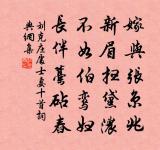 嫁與張京兆
新眉掃黛濃
不如伯鸞婦
長伴藁砧舂
刘克庄處士妻十首詞
典網集